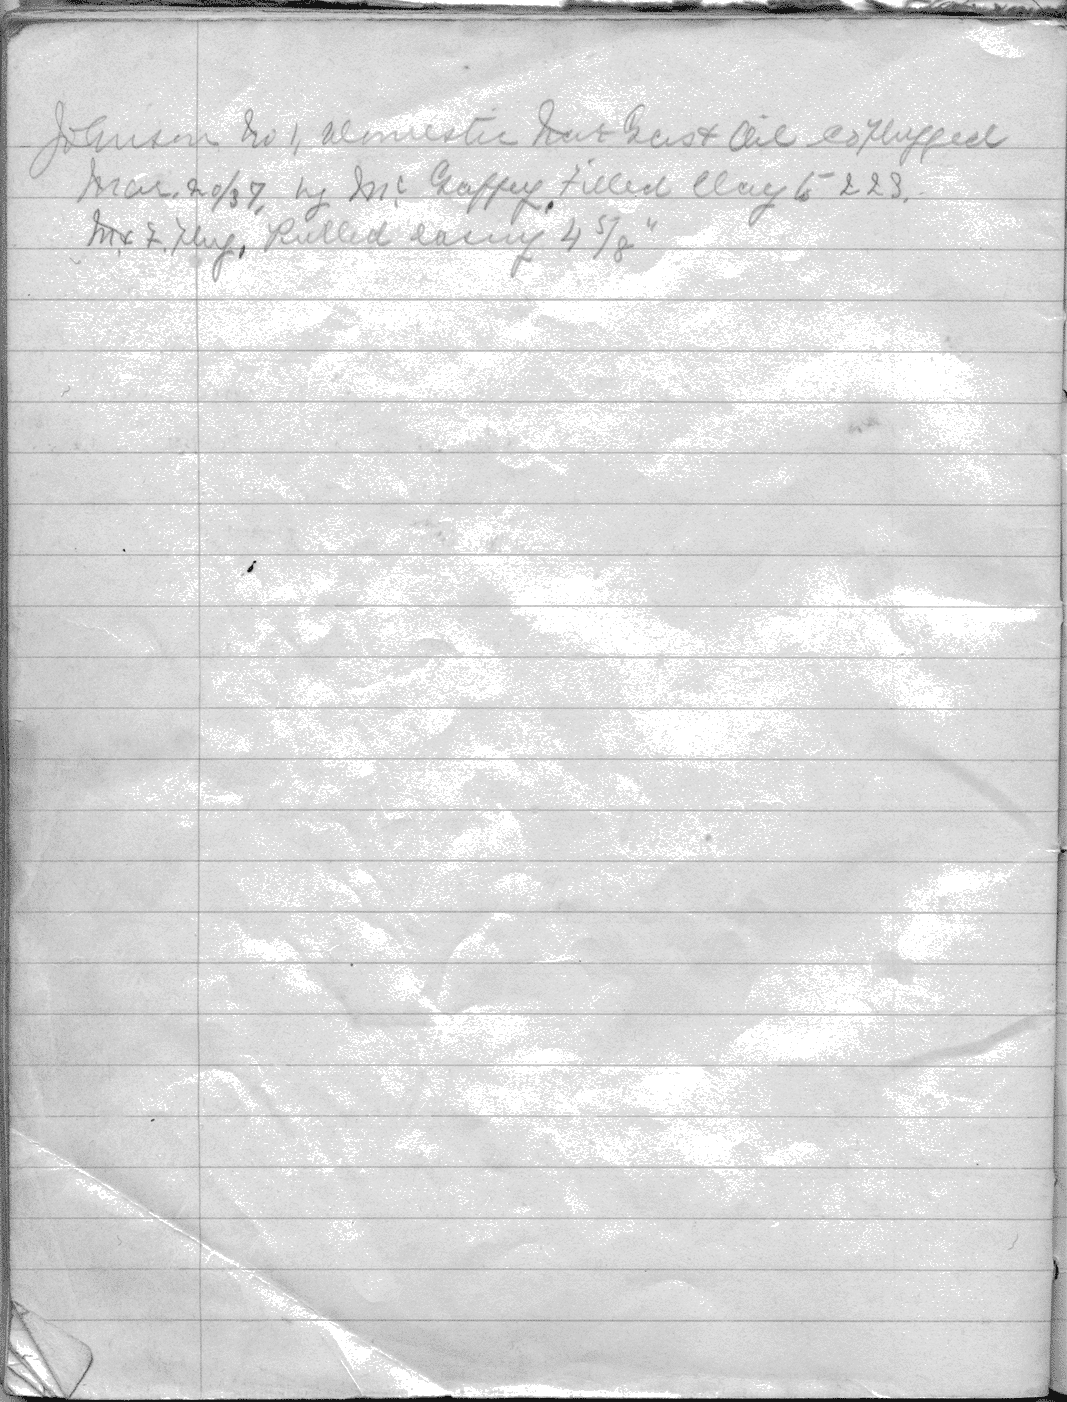 Johnson No 1, Domestic Nat Gas & Oil Co Plugged
Mar. 20/37, by Mc Gaffey. Filled Clay to 223.
Plug. Pulled casing 4 5/8"